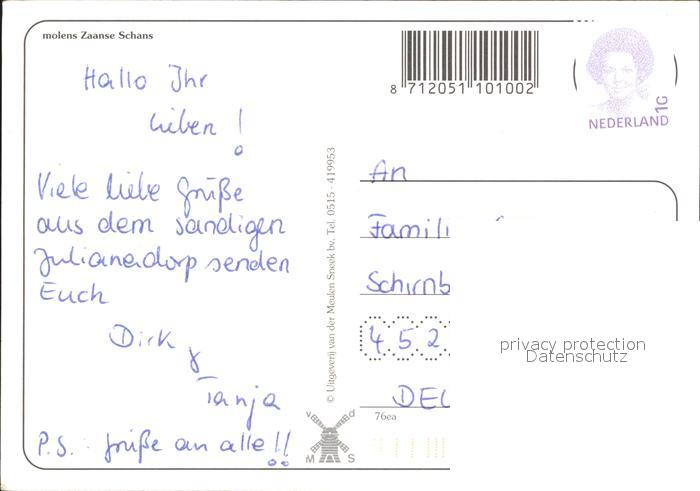 molens Zaanse Schans
Hallo Ihr
lieben !
Viele liebe Grüße
aus dem sandigen
Julianadorp senden
Euch
Dirk &
Tanja
P.S. Grüße an alle!!
© Uitgeverij van der Meulen Sneek bv. Tel. 0515 - 419953
8 712051 101002
NEDERLAND
An
Famili
Schirnb
4 5 2
DEU
76ea
v d
M S
privacy protection
Datenschutz